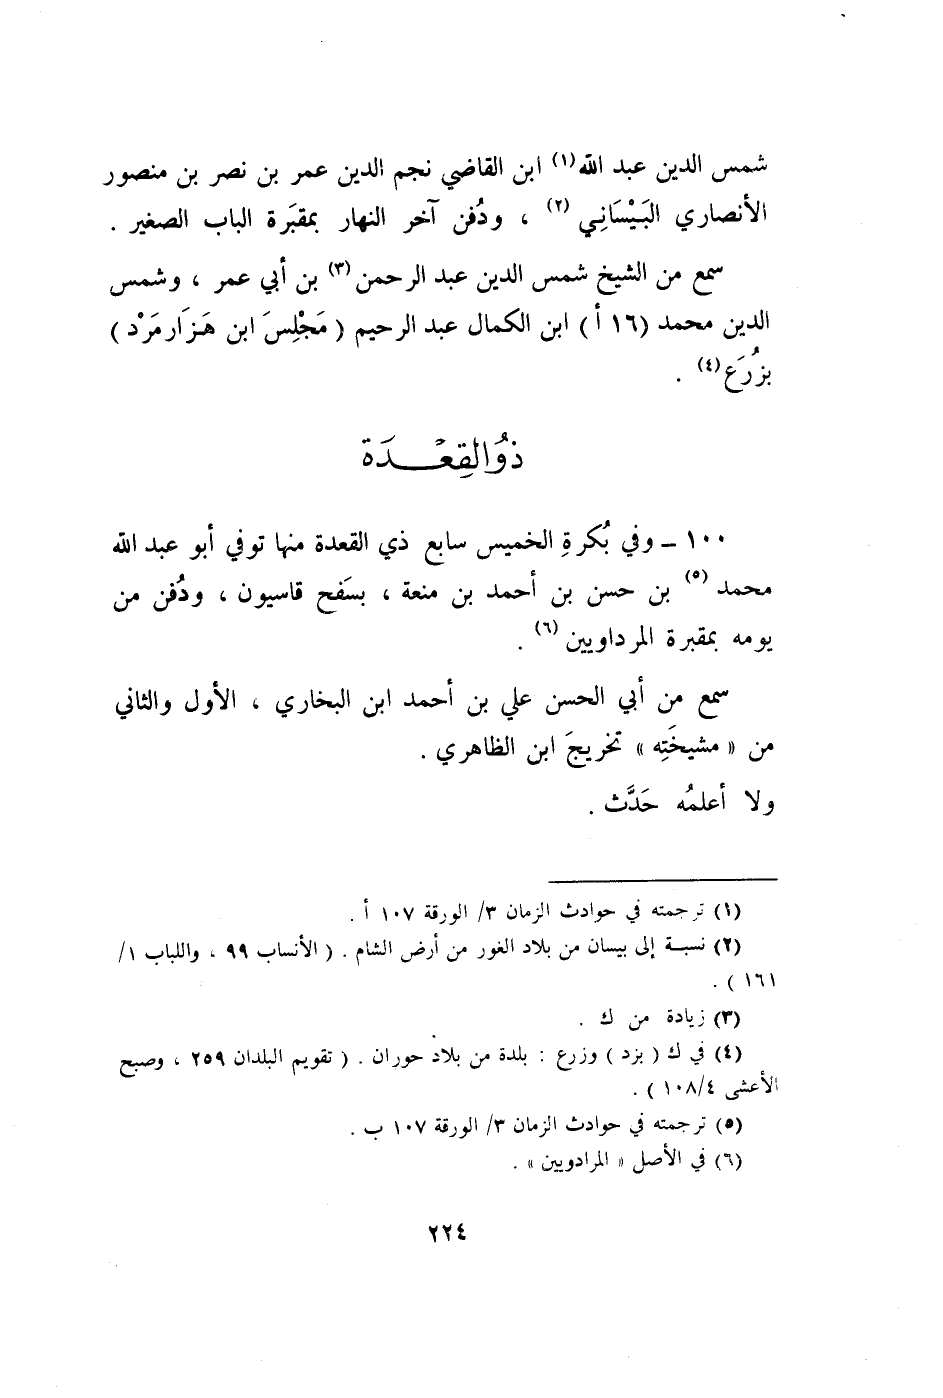 شمس الدين عبد الله(١) ابن القاضي نجم الدين عمر بن نصر بن منصور
الأنصاري البَيْسَانِي (٢) ، ودُفن آخر النهار بمقبَرة الباب الصغير .
سمع من الشيخ شمس الدين عبد الرحمن(٣) بن أبي عمر ، وشمس
الدين محمد (١٦ أ) ابن الكمال عبد الرحيم ( مَجْلِسَ ابن هَزَارمَرْد )
بزُرَع(٤) .
ذُو القِعْدَة
١٠٠ ـ وفي بُكرةِ الخميس سابع ذي القعدة منها توفي أبو عبد الله
محمد (٥) بن حسن بن أحمد بن منعة ، بسَفح قاسيون ، ودُفن من
يومه بمقبرة المرداويين (٦) .
سمع من أبي الحسن علي بن أحمد ابن البخاري ، الأول والثاني
من « مشيخَتِه » تخريجَ ابن الظاهري .
ولا أعلمُه حَدَّث .
(١) ترجمته في حوادث الزمان ٣/ الورقة ١٠٧ أ .
(٢) نسبة إلى بيسان من بلاد الغور من أرض الشام . ( الأنساب ٩٩ ، واللباب ١/
١٦١ ) .
(٣) زيادة من ك .
(٤) في ك ( بزد ) وزرع : بلدة من بلاد حوران . ( تقويم البلدان ٢٥٩ ، وصبح
الأعشى ١٠٨/٤ ) .
(٥) ترجمته في حوادث الزمان ٣/ الورقة ١٠٧ ب .
(٦) في الأصل « المرادويين » .
٢٢٤